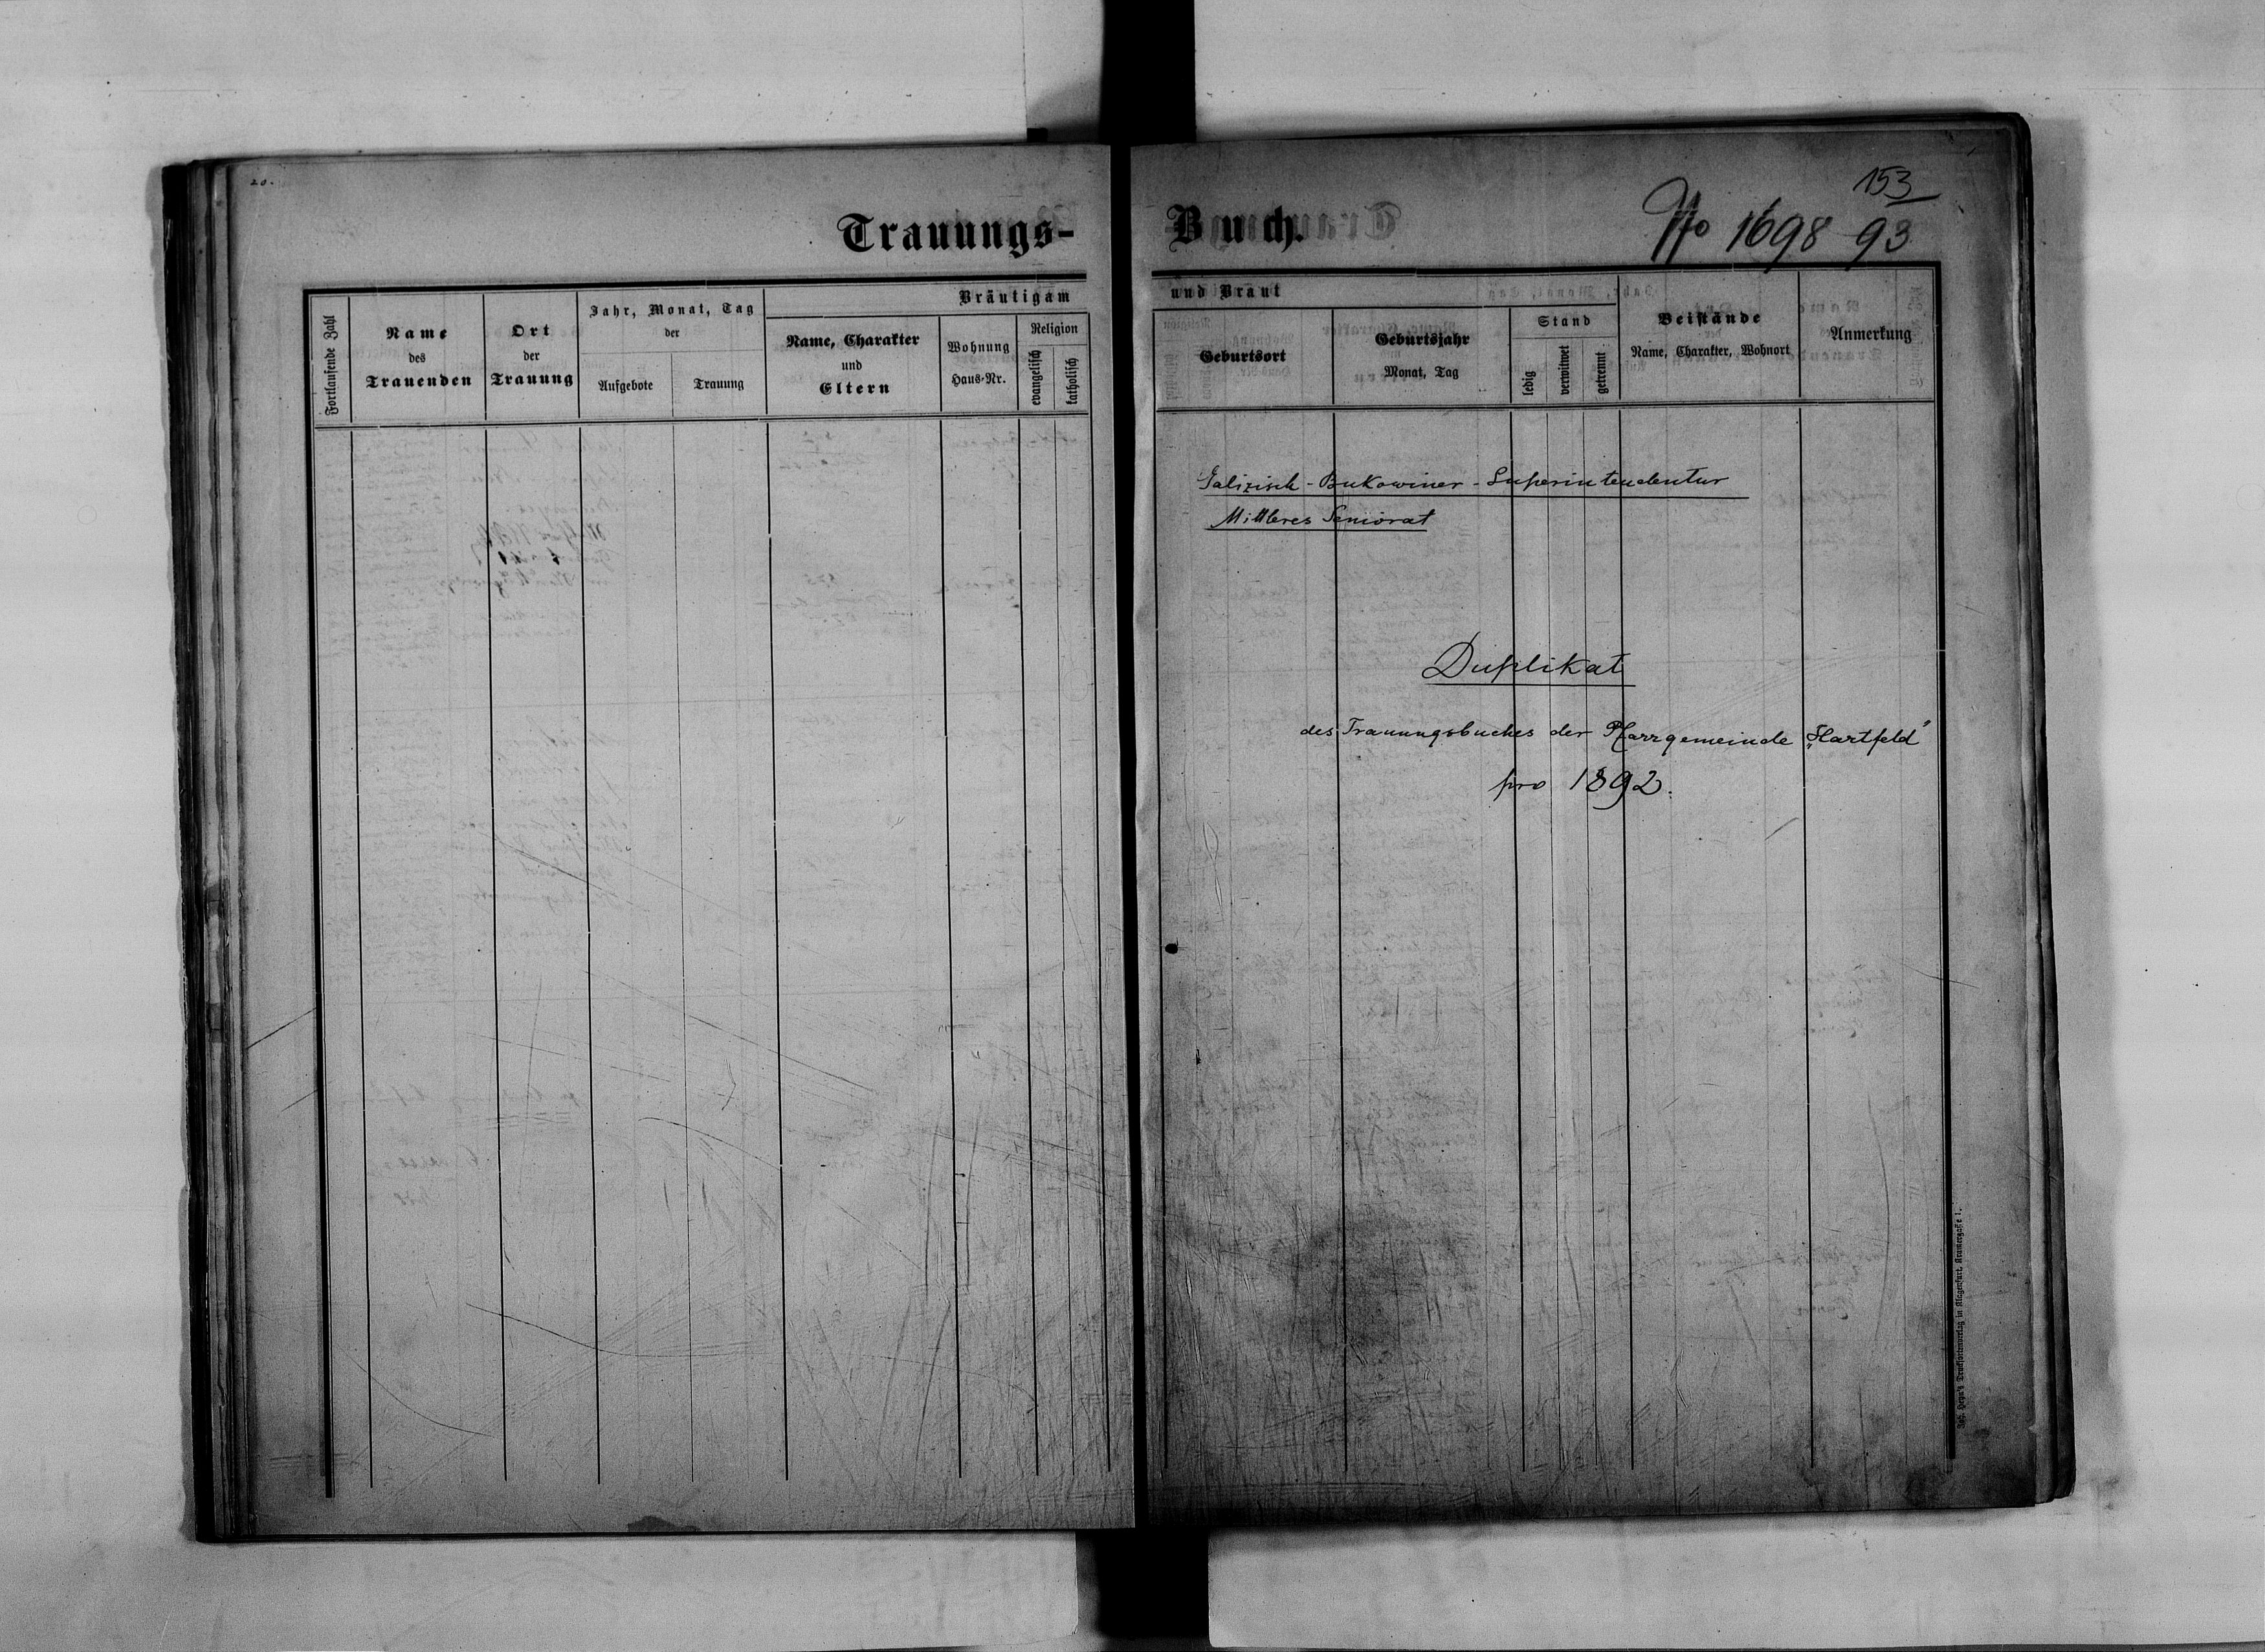 20.
Trauungs-
Fortlaufende Zahl
Name
des
Trauenden
Ort
der
Trauung
Jahr, Monat, Tag
der
Aufgebote
Trauung
Bräutigam
Name, Charakter
und
Eltern
Wohnung
Haus-Nr.
Religion
evangelisch
katholisch
153
Buch.
No 1698 93
und Braut
Geburtsort
Geburtsjahr
Monat, Tag
Stand
ledig
verwitwet
getrennt
Beistände
Name, Charakter, Wohnort
Anmerkung
Galizisch-Bukowiner-Superintendentur
Mittleres Seniorat
Duplikat
des Trauungsbuches der Pfarrgemeinde „Hartfeld"
pro 1892.
Joh. Heyn's Drucksortenverlag in Klagenfurt, Kramergasse 1.